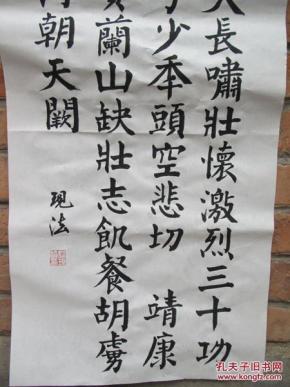 天長嘯壯懷激烈三十功
少年頭空悲切 靖康
賀蘭山缺壯志飢餐胡虜
朝天闕
現法
孔夫子旧书网